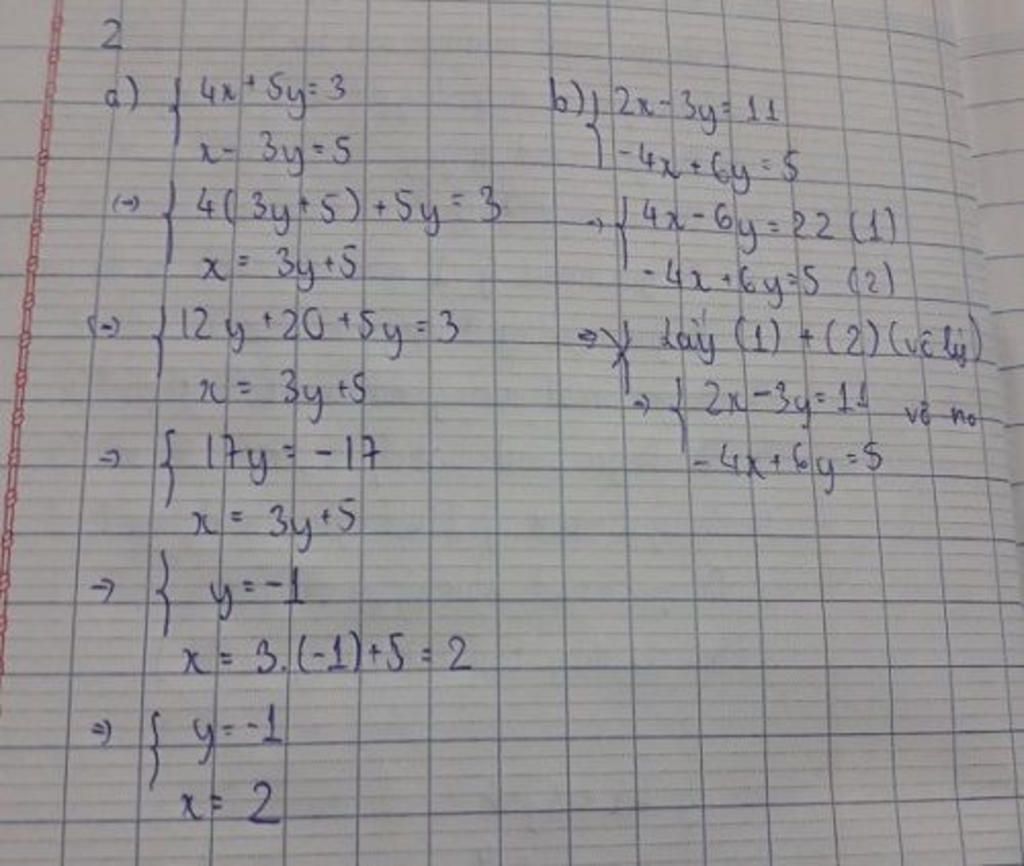 2
a) { 4x + 5y = 3
x - 3y = 5
(→) { 4(3y+5) + 5y = 3
x = 3y+5
(→) { 12y + 20 + 5y = 3
x = 3y+5
⇒ { 17y = -17
x = 3y+5
→ { y = -1
x = 3.(-1)+5 = 2
⇒ { y = -1
x = 2
b) { 2x - 3y = 11
-4x + 6y = 5
→ { 4x - 6y = 22 (1)
-4x + 6y = 5 (2)
⇒ Lấy (1) + (2) (vô lý)
⇒ { 2x - 3y = 11 vô no
-4x + 6y = 5